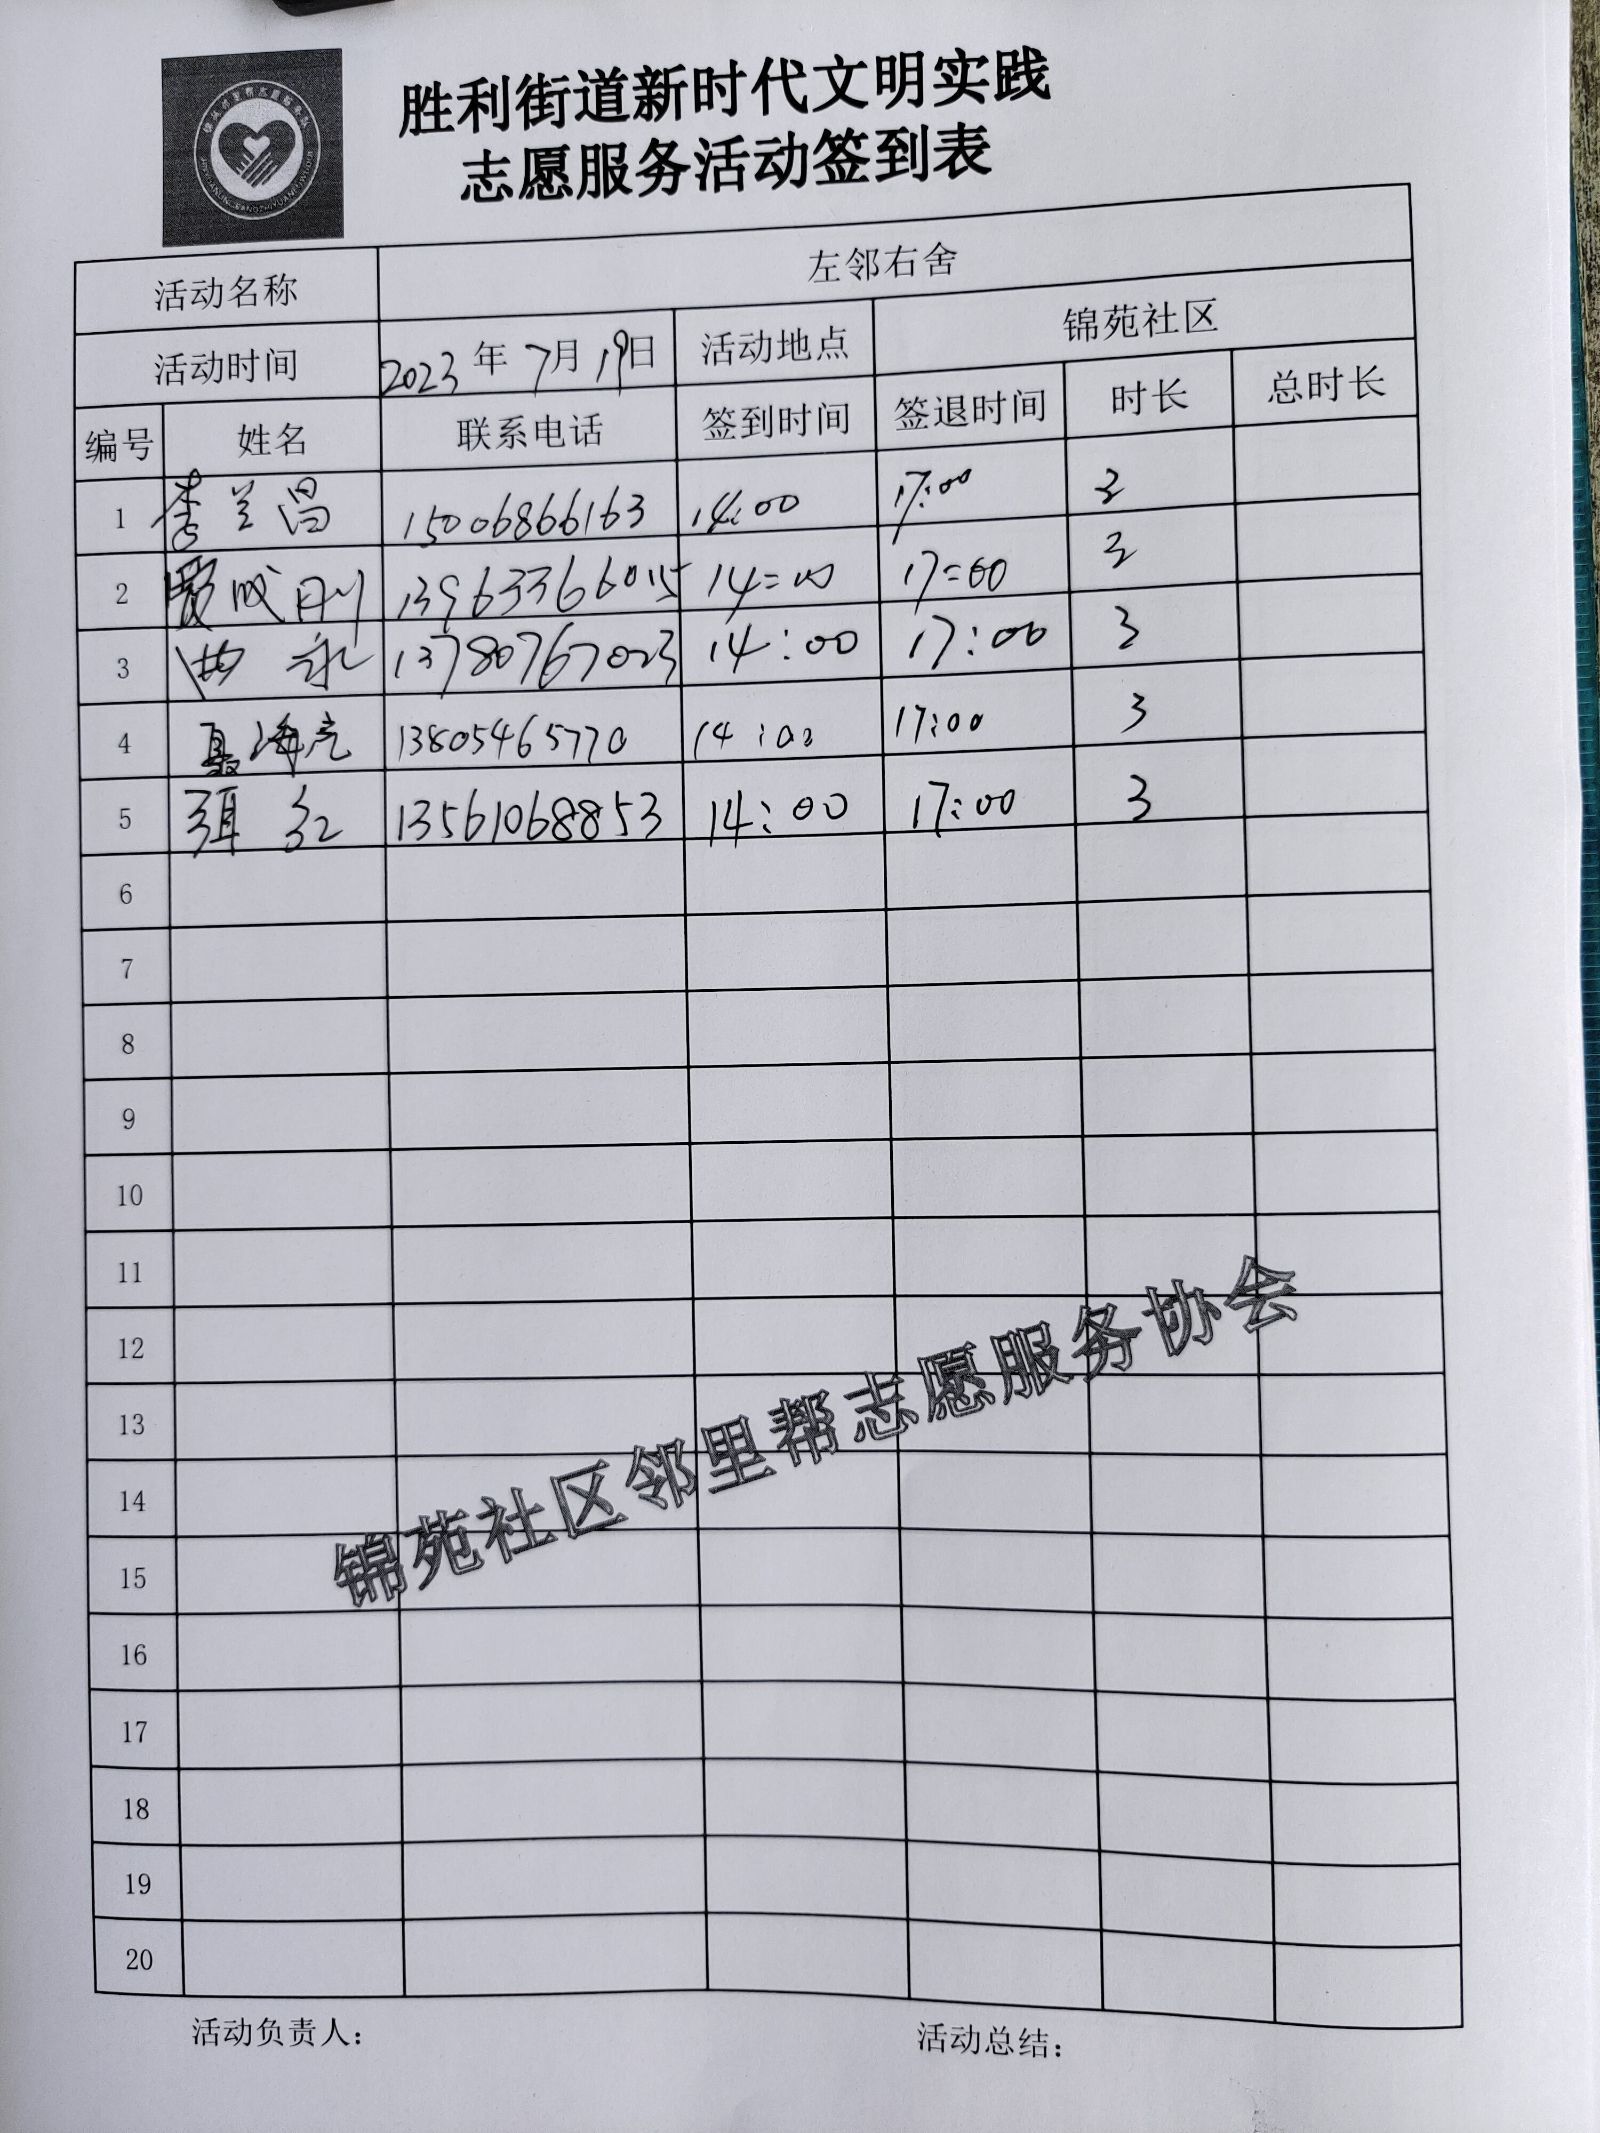 胜利街道新时代文明实践
志愿服务活动签到表
活动名称 左邻右舍
活动时间 2023年7月19日 活动地点 锦苑社区
编号 姓名 联系电话 签到时间 签退时间 时长 总时长
1 李兰昌 15006866163 14:00 17:00 3
2 贾成刚 13963366015 14:00 17:00 3
3 曲永 13780767023 14:00 17:00 3
4 聂海亮 13805465770 14:00 17:00 3
5 红 13561068853 14:00 17:00 3
6
7
8
9
10
11
12
13
14
15
16
17
18
19
20
锦苑社区邻里帮志愿服务协会
活动负责人： 活动总结：